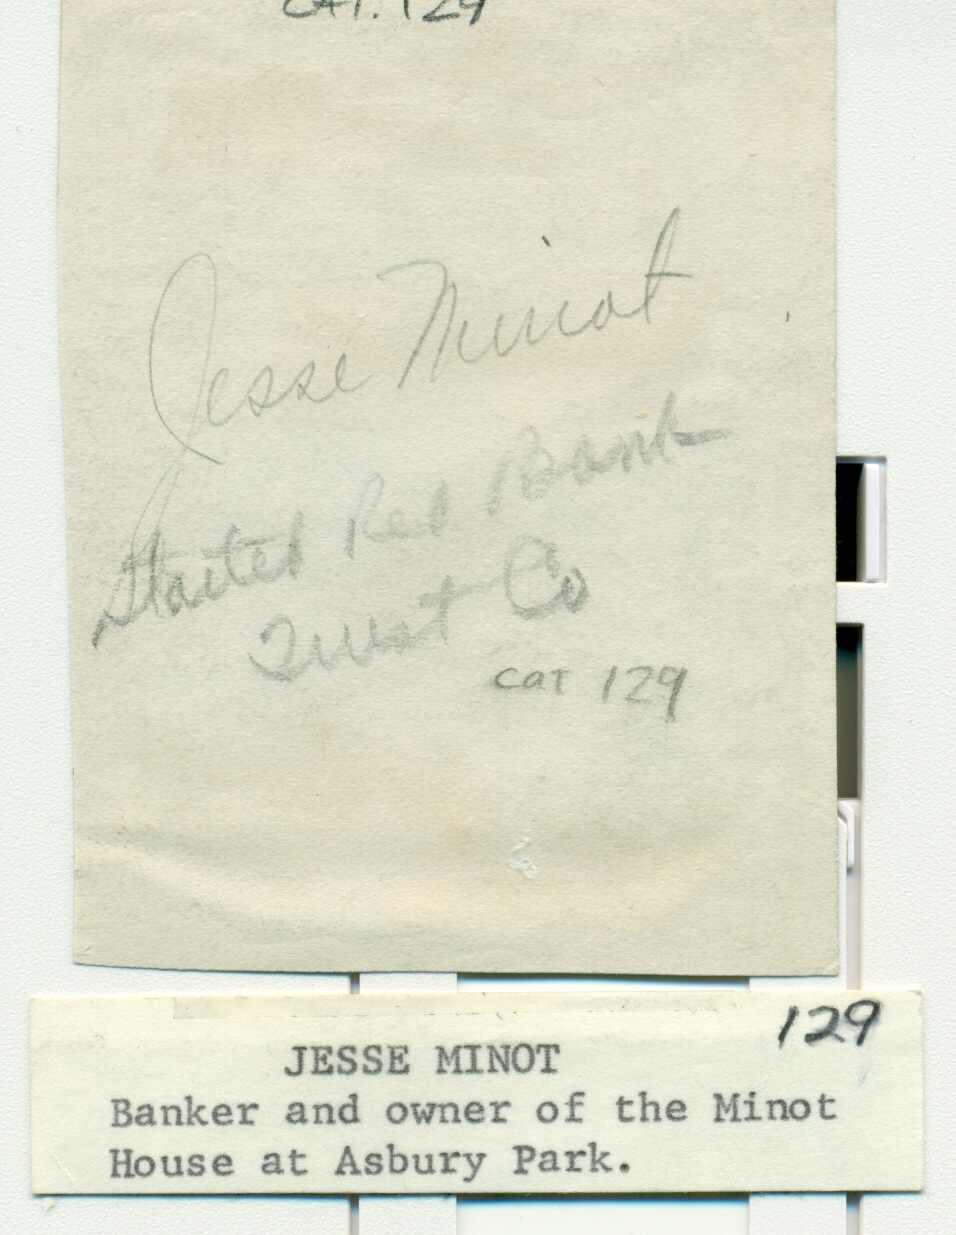 CAT. 129
Jesse Minot
Started Red Bank
Trust Co
CAT 129
129
JESSE MINOT
Banker and owner of the Minot
House at Asbury Park.